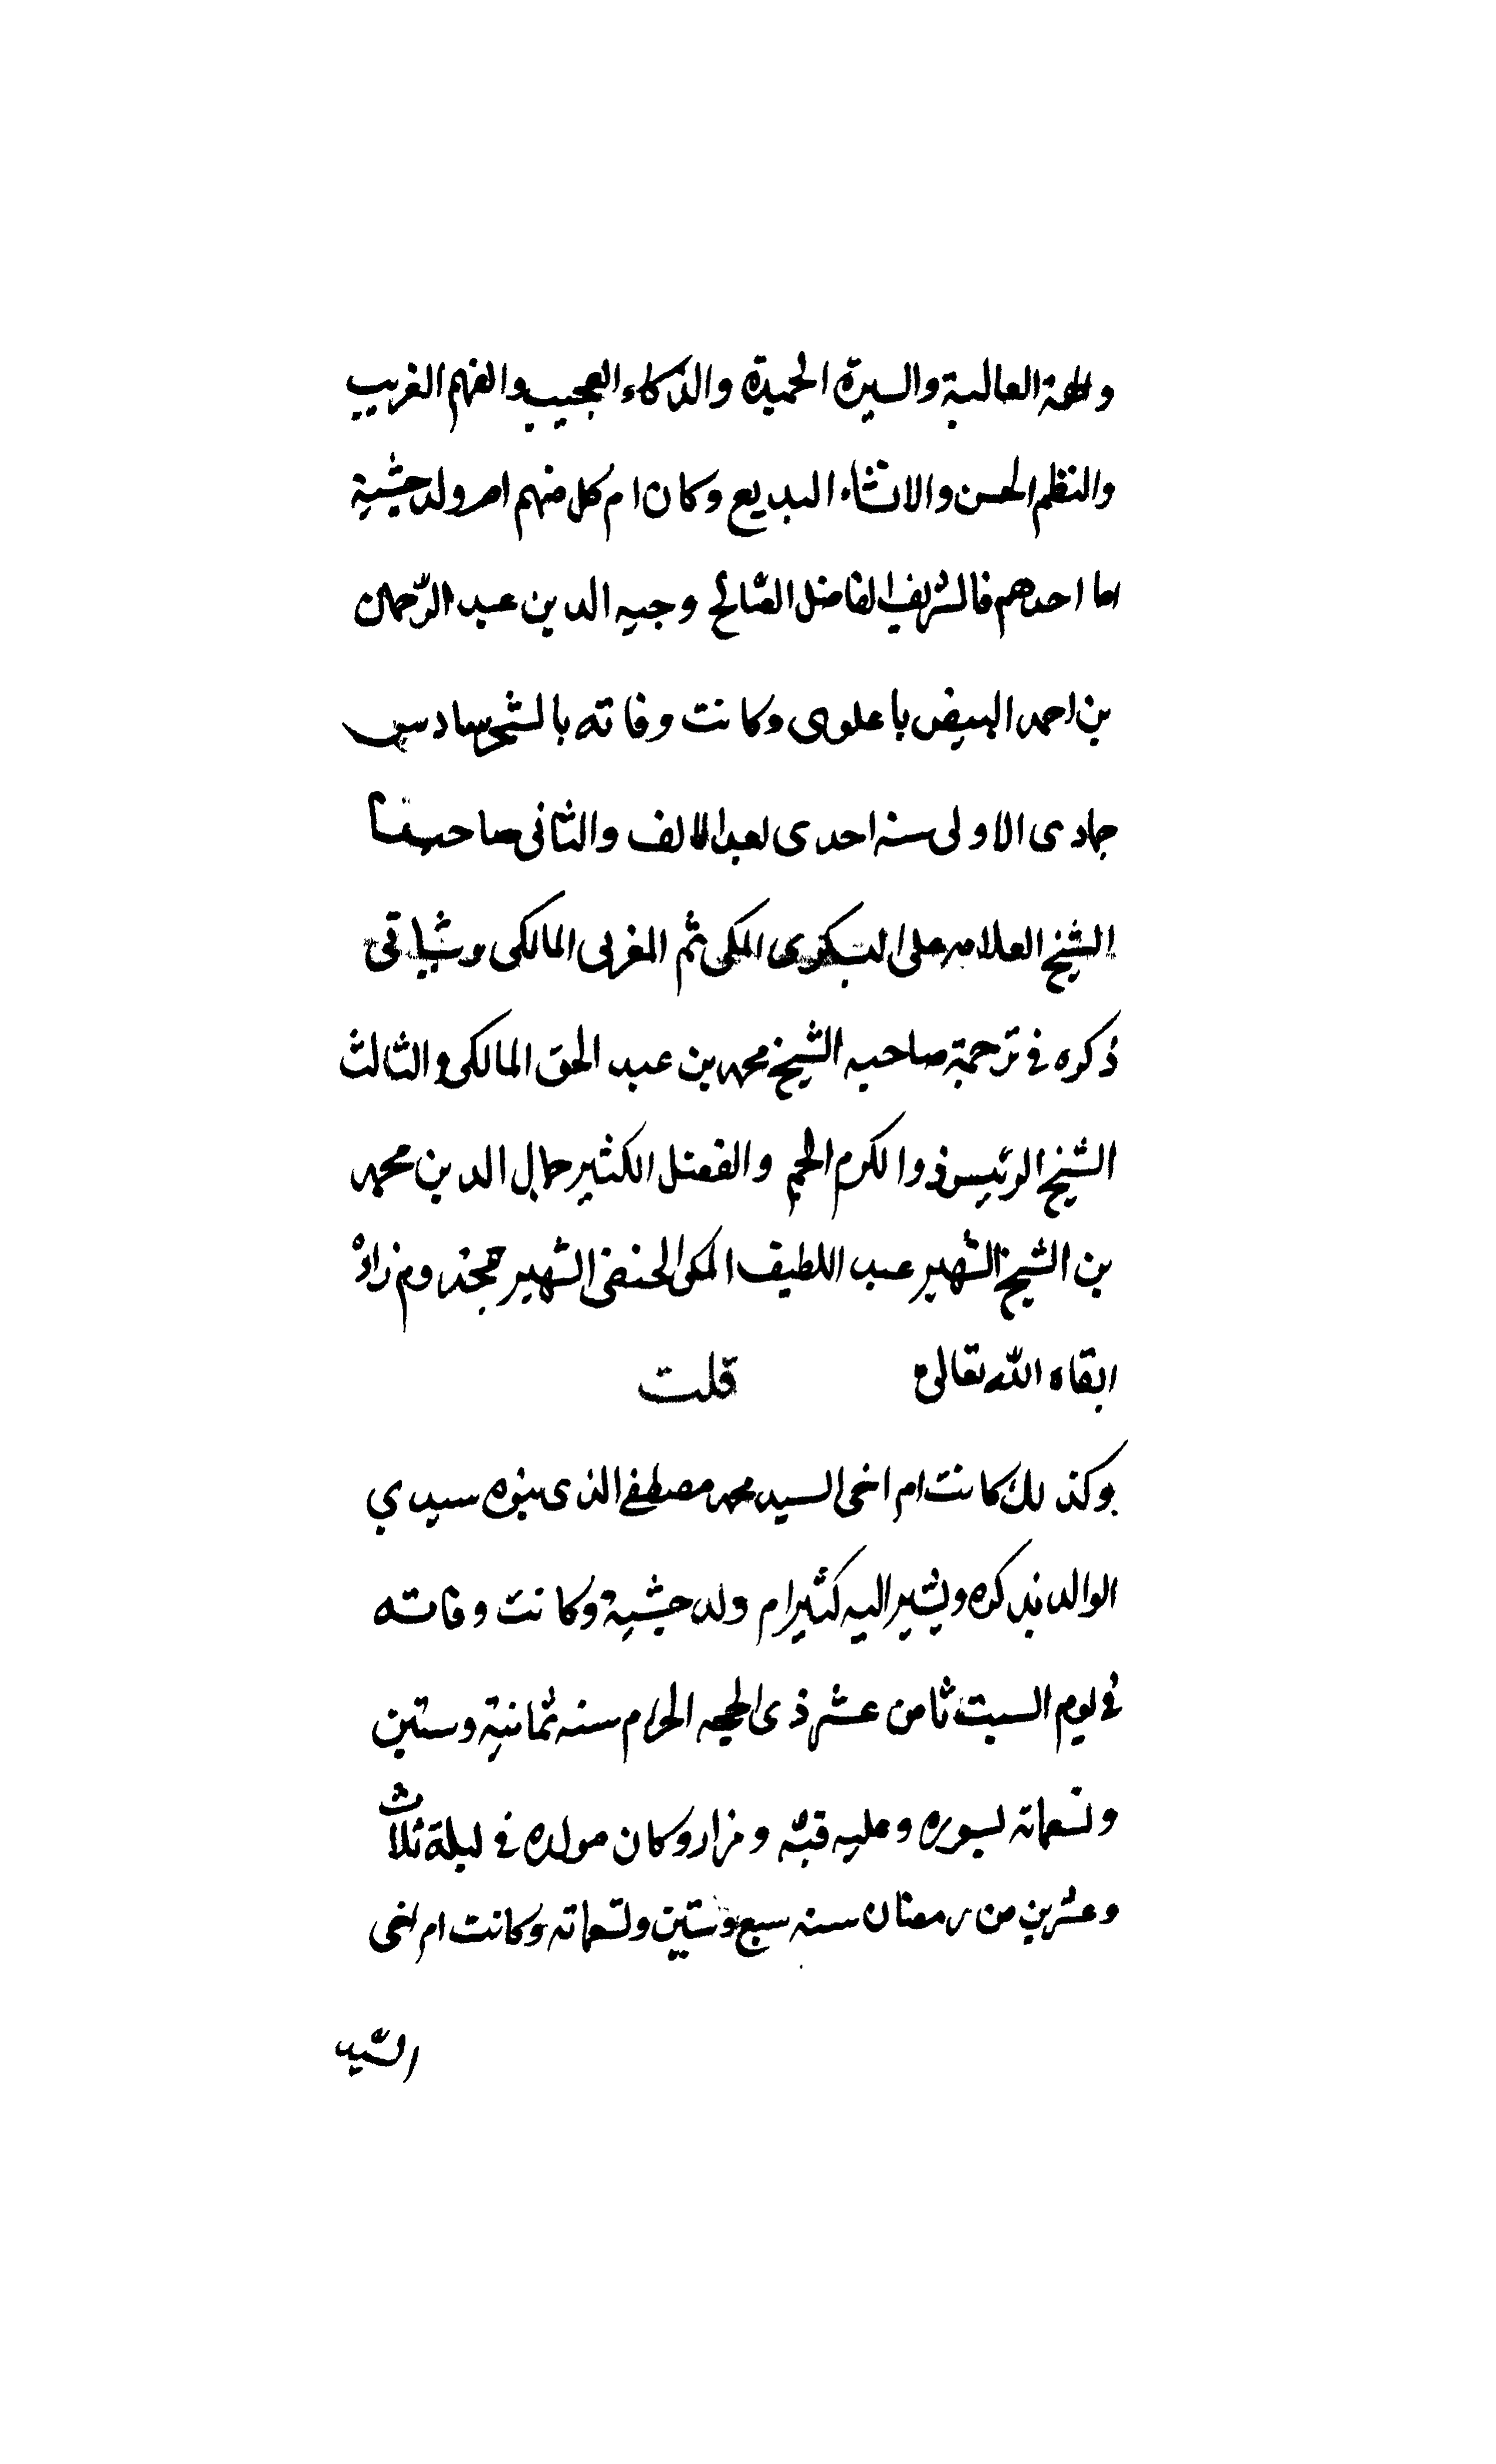 والهمة العالية والسيرة الحميدة والذكاء العجيب والفهم الغريب
والنظم الحسن والانشاء البديع وكان ام كل منهم ام ولد حبشية
اما احدهم فالشريف الفاضل الصالح وجيه الدين عبد الرحمن
بن احمد البيض باعلوى وكانت وفاته بالشحر سادس
جمادى الاولى سنه احدى بعد الالف والثانى صاحبنا
الشيخ العلامه على البسكرى المكى ثم المغربى المالكى وسياتى
ذكره فى ترجمة صاحبه الشيخ محمد بن عبد الحق المالكى والثالث
الشيخ الرئيس ذو الكرم الجم والفضل الكثير جمال الدين محمد
بن الشيخ الشهير عبد اللطيف المكى الحنفى الشهير بمخدوم زاده
ابقاه الله تعالى قلت
وكذلك كانت ام اخى السيد محمد مصطفى الذى ينوه سيدي
الوالد بذكره ويشير اليه كثيرا ام ولد حبشية وكانت وفاته
فى يوم السبت ثامن عشر ذى الحجه الحرام سنه ثمانية وستين
وتسعماته بسوره وعليه قبه ومزار وكان مولده فى ليلة ثلاث
وعشرين من رمضان سنه سبع وستين وتسعماته وكانت ام اخى
السيد